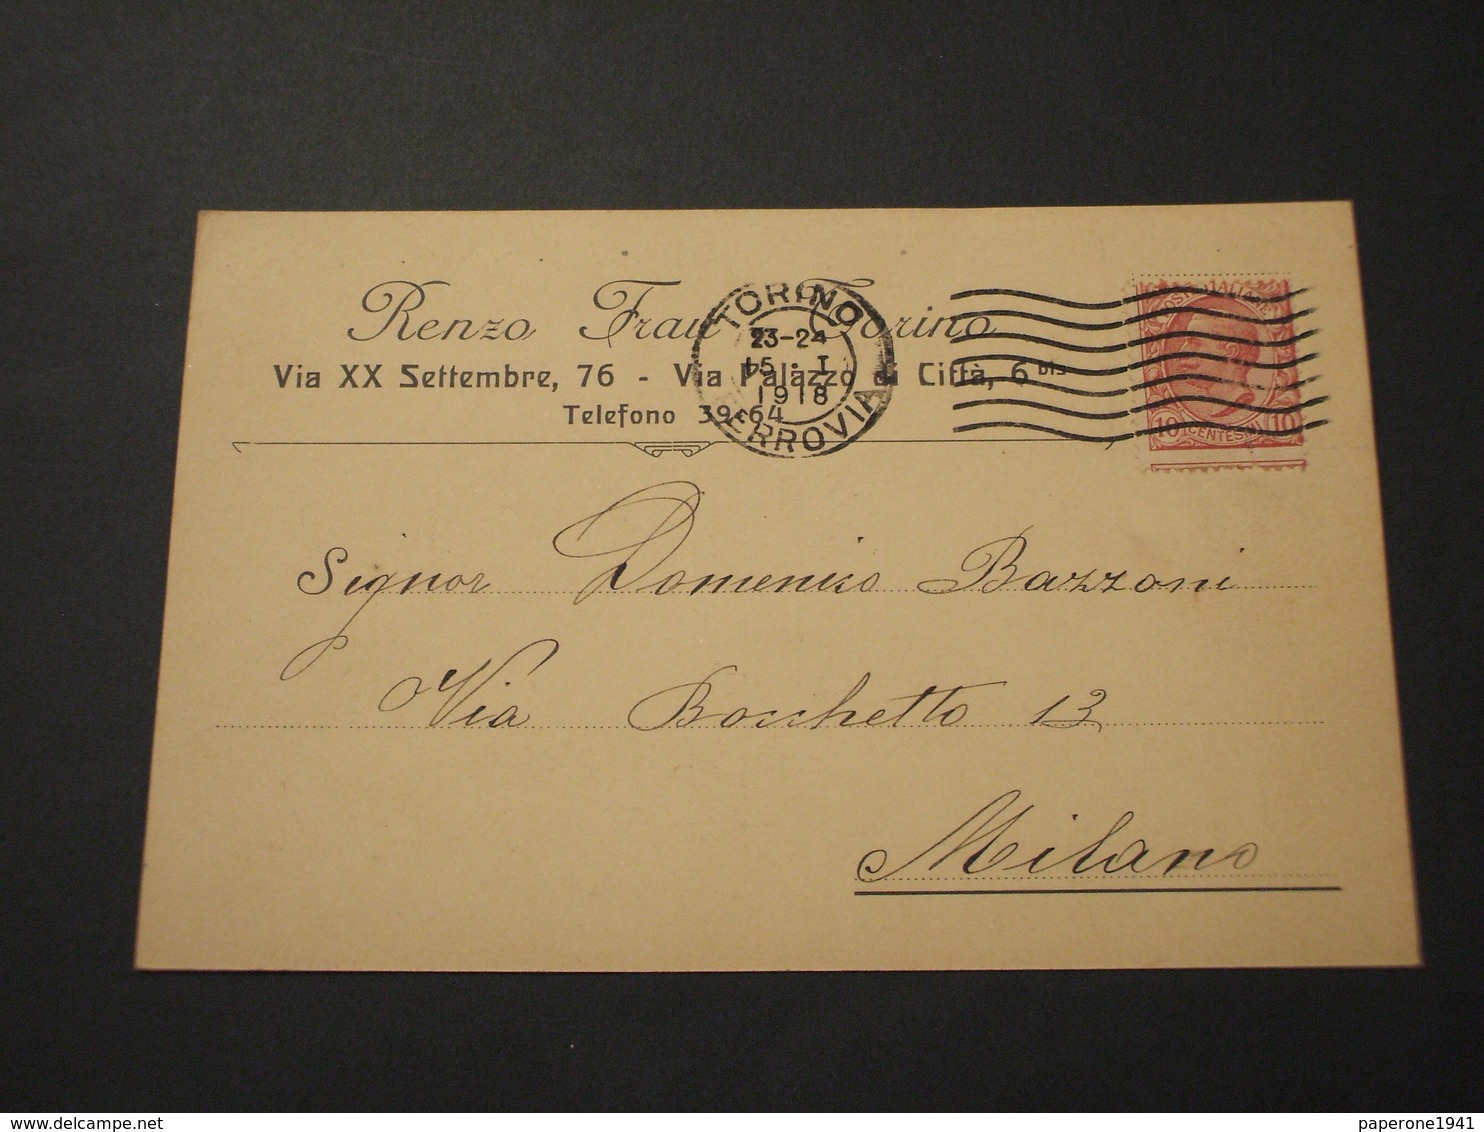 Renzo Frau - Torino
Via XX Settembre, 76 - Via Palazzo di Città, 6 bis
Telefono 39-64
TORINO
23-24
15 . I
1918
FERROVIA
POSTE ITALIANE
10 CENTESIMI 10
Signor Domenico Bazzoni
Via Bocchetto 13
Milano
delcampe.net
paperone1941